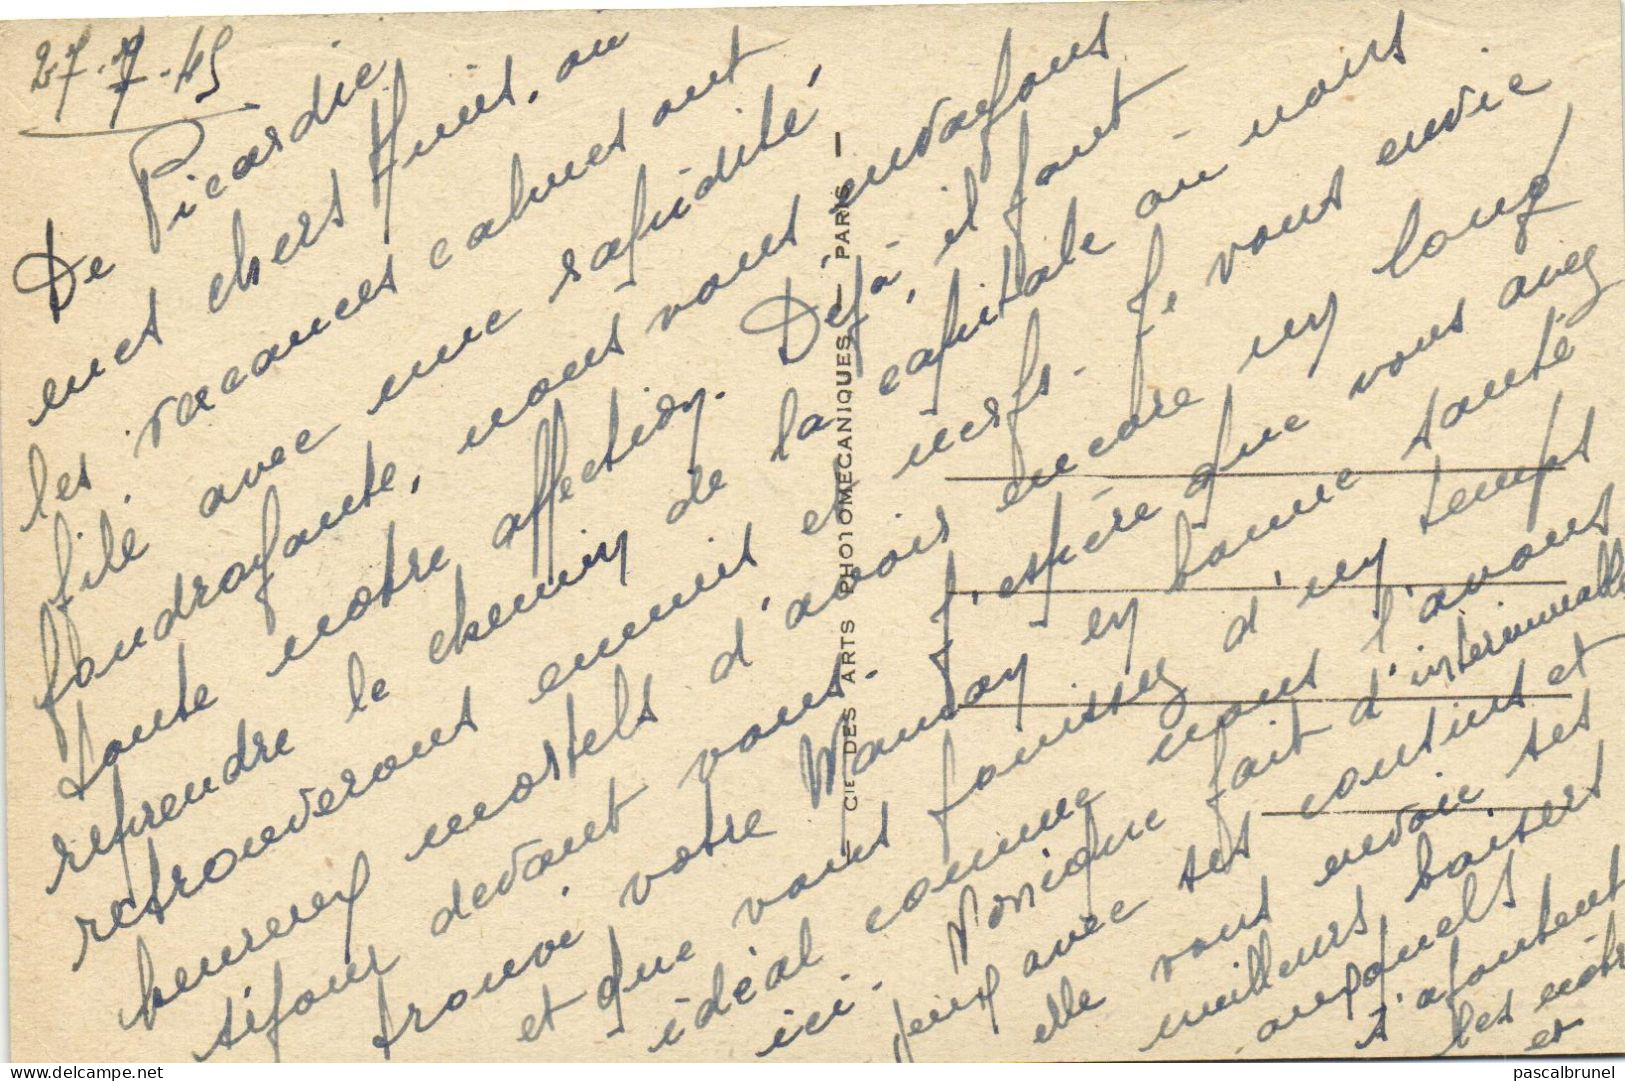 27-7-45
De Picardie,
mes chers Amis, où
les vacances calmes ont
filé avec une rapidité
foudroyante, nous vous envoyons
toute notre affection. Déjà, il faut
reprendre le chemin de la capitale où nous
retrouverons ennuis et nerfs. Je vous envie
heureux mortels d'avoir encore un long
séjour devant vous. J'espère que vous avez
trouvé votre Maman en bonne santé
et que vous jouissez d'un temps
idéal comme nous l'avons
ici. Monique fait d'interminables
jeux avec ses cousins et
elle vous envoie ses
meilleurs baisers
auxquels
s'ajoutent
les nôtres
et
— CIE DES ARTS PHOTOMECANIQUES — PARIS —
pascalbrunel